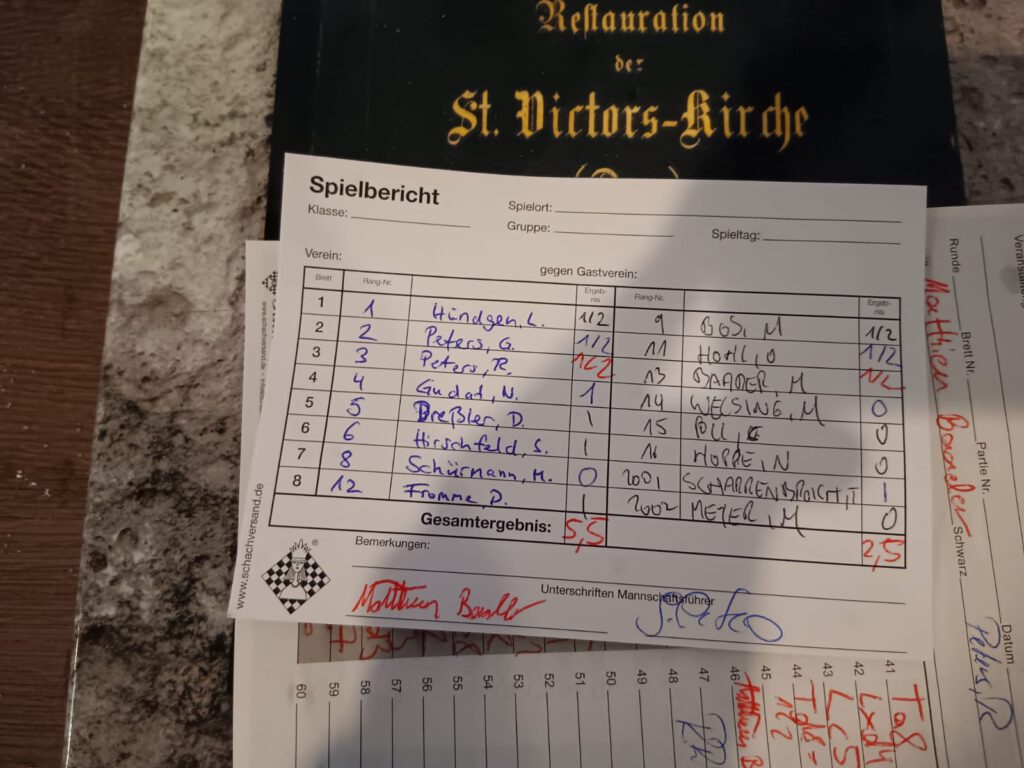 Restauration
der
St. Victors-Kirche
Spielbericht
Spielort:
Klasse:
Gruppe:
Spieltag:
Verein:
gegen Gastverein:
Brett Rang-Nr. Ergeb-nis Rang-Nr. Ergeb-nis
1 1 Hündgen, L. 1/2 9 BOS, M 1/2
2 2 Peters, G. 1/2 11 O 1/2
3 3 Peters, R. 1/2 13 BAADER, M 1/2
4 4 Gudat, N. 1 14 WELSING, M 0
5 5 Dreßler, D. 1 15 0
6 6 Hirschfeld, S. 1 16 HOPPE, N 0
7 8 Schürmann, M. 0 2001 SCHARRENBROICH, T 1
8 12 Fromme, D. 1 2002 MEYER, M 0
Gesamtergebnis: 5,5 2,5
Bemerkungen:
Unterschriften Mannschaftsführer
www.schachversand.de
®
Runde
Brett Nr.
Partie Nr.
Schwarz
Datum
Peters, R
60
59
58
57
56
55
54
53
52
51
50
49
48
47
46
45
44
43
42
41